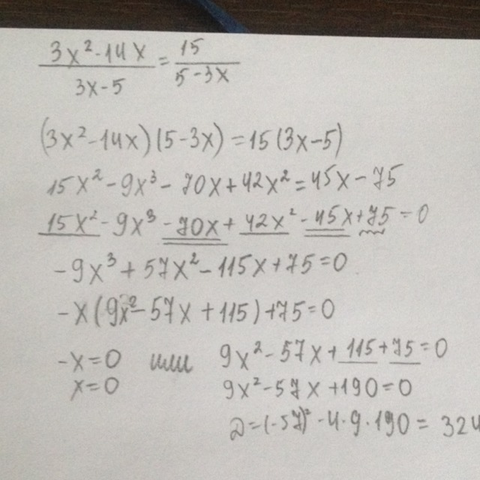 (3x²-14x)/(3x-5) = 15/(5-3x)
(3x²-14x)(5-3x)=15(3x-5)
15x²-9x³-70x+42x²=45x-75
15x²-9x³-70x+42x²-45x+75=0
-9x³+57x²-115x+75=0
-x(9x²-57x+115)+75=0
-x=0 или 9x²-57x+115+75=0
x=0 9x²-57x+190=0
D=(-57)²-4·9·190=324